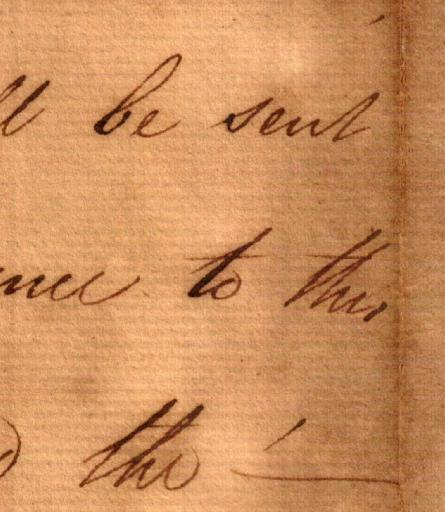 ll be sent
nce to this
d the